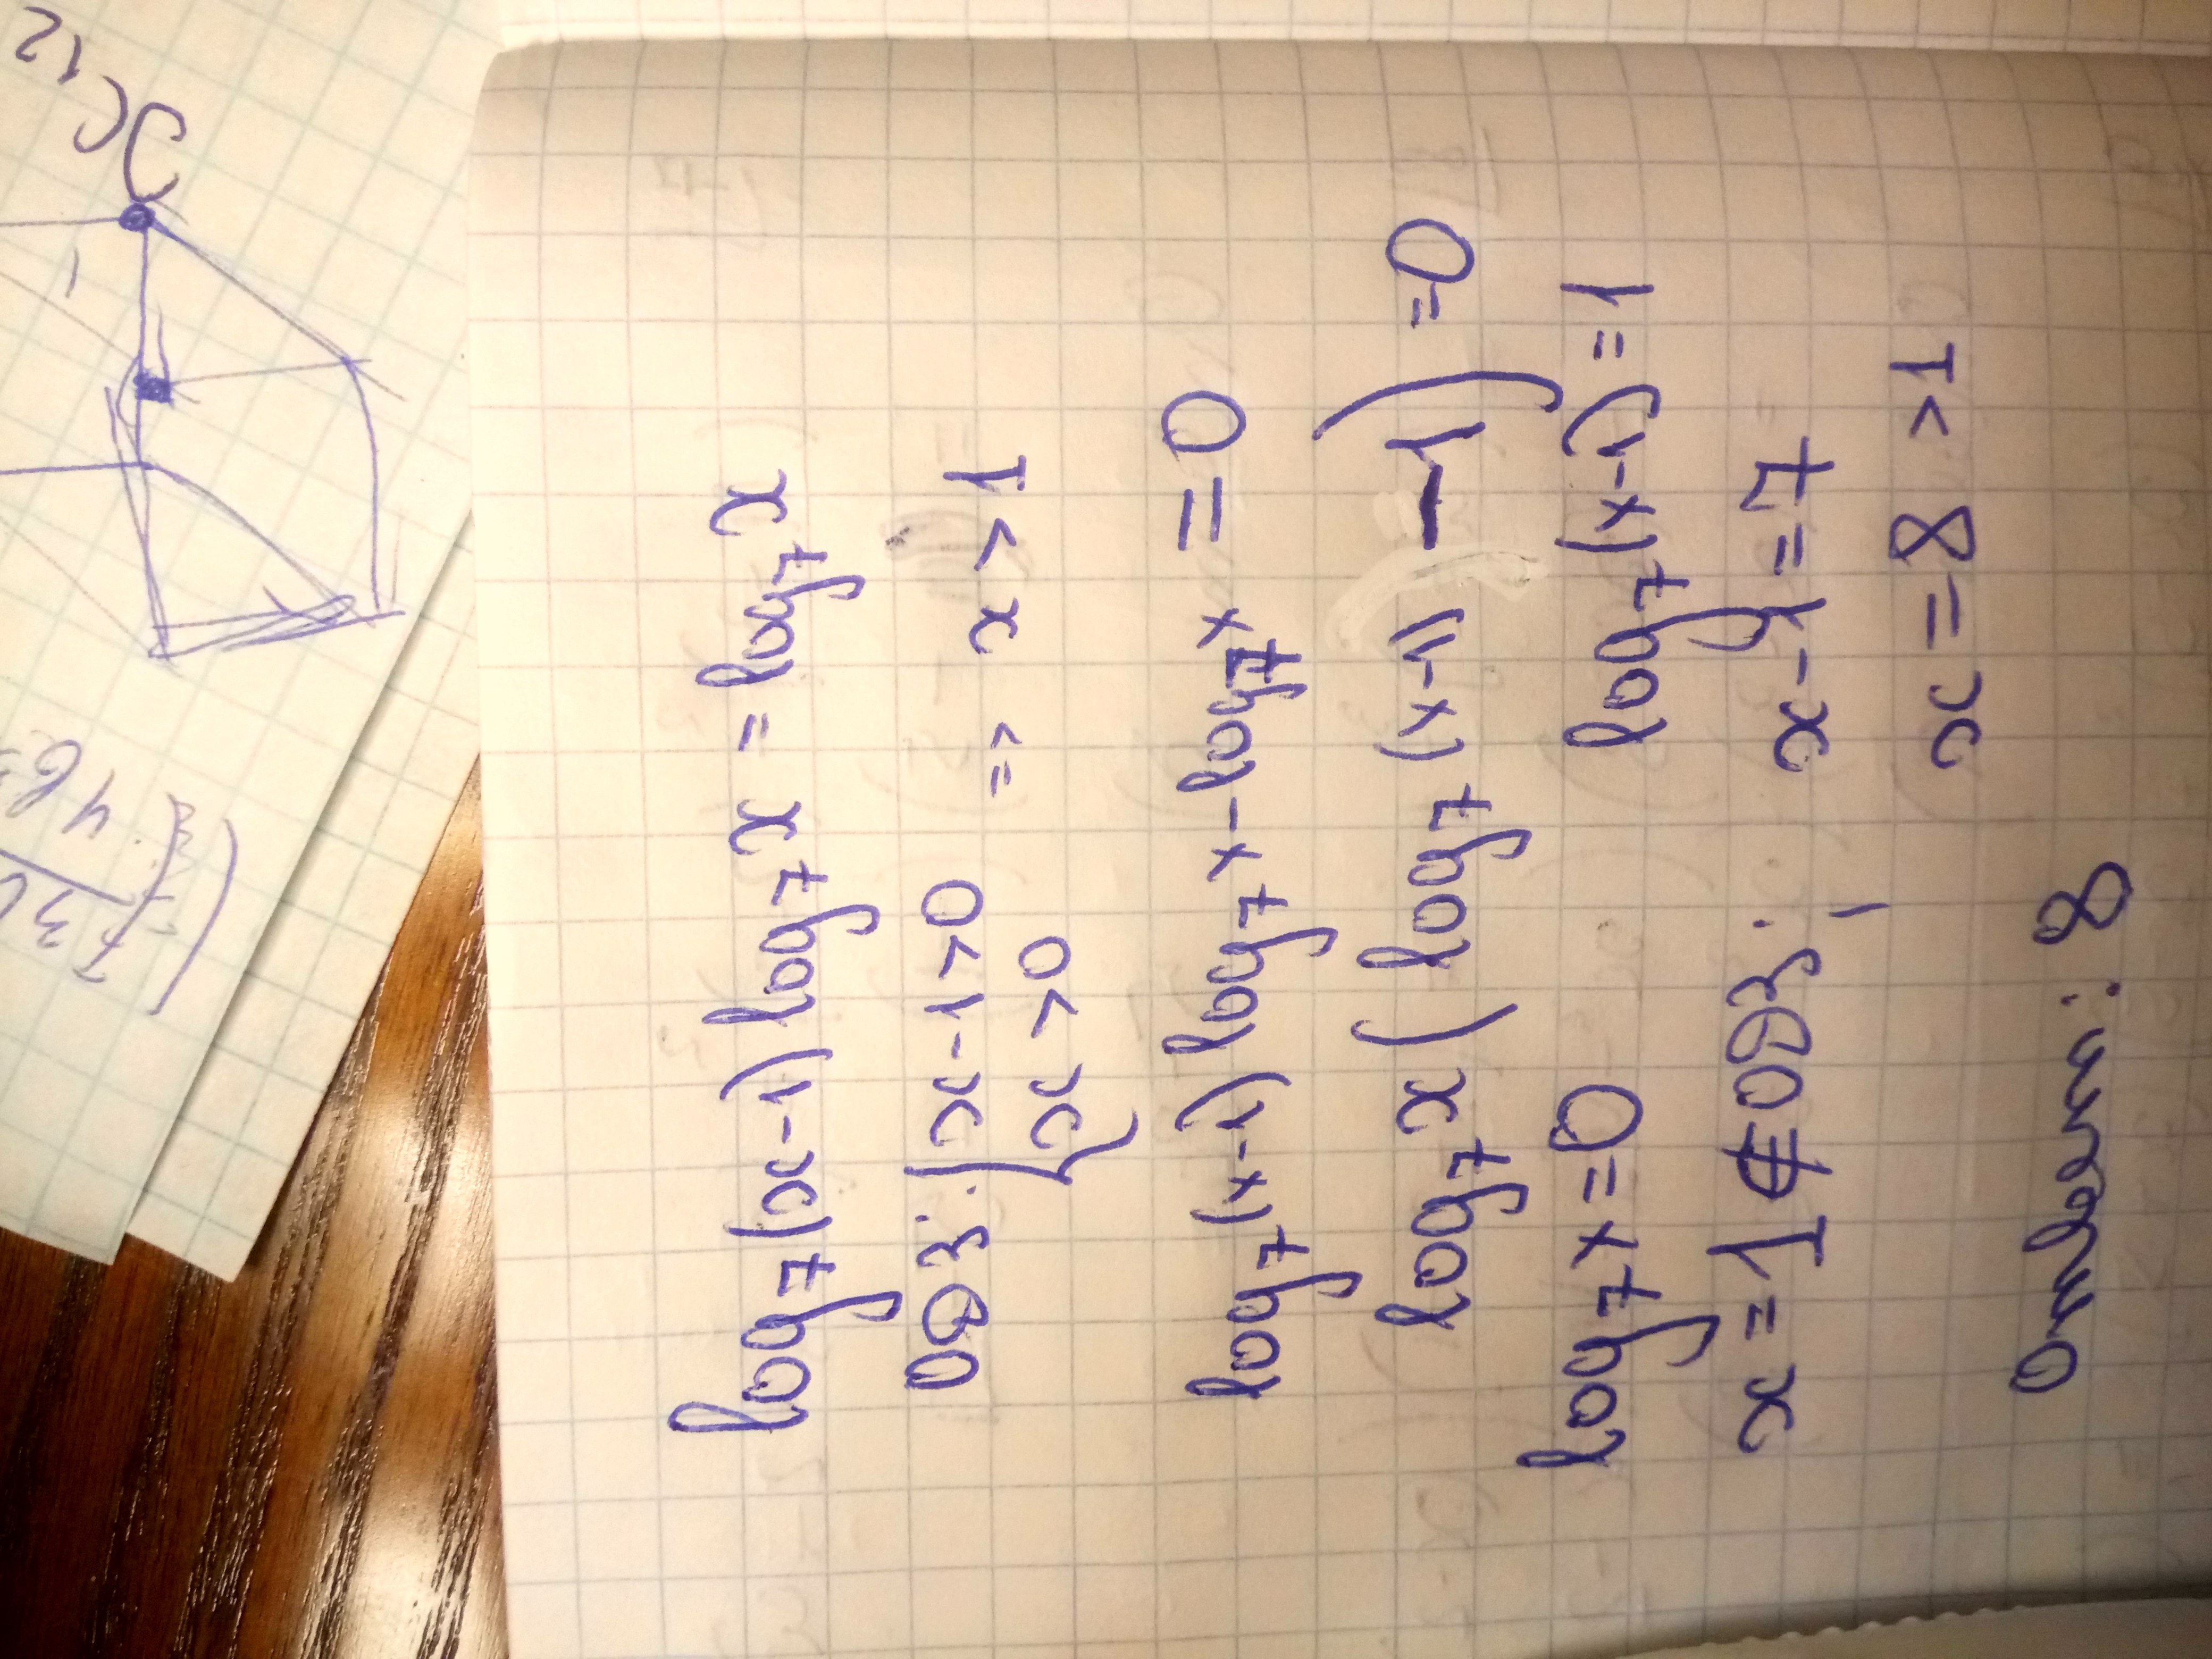 log₇(x-1) log₇x = log₇x
ОДЗ: { x-1>0
x>0 => x>1
log₇(x-1) log₇x - log₇x = 0
log₇x ( log₇(x-1) - 1 ) = 0
log₇x = 0 log₇(x-1) = 1
x = 1 ∉ ОДЗ; x-1 = 7
x = 8 > 1
Ответ: 8
12